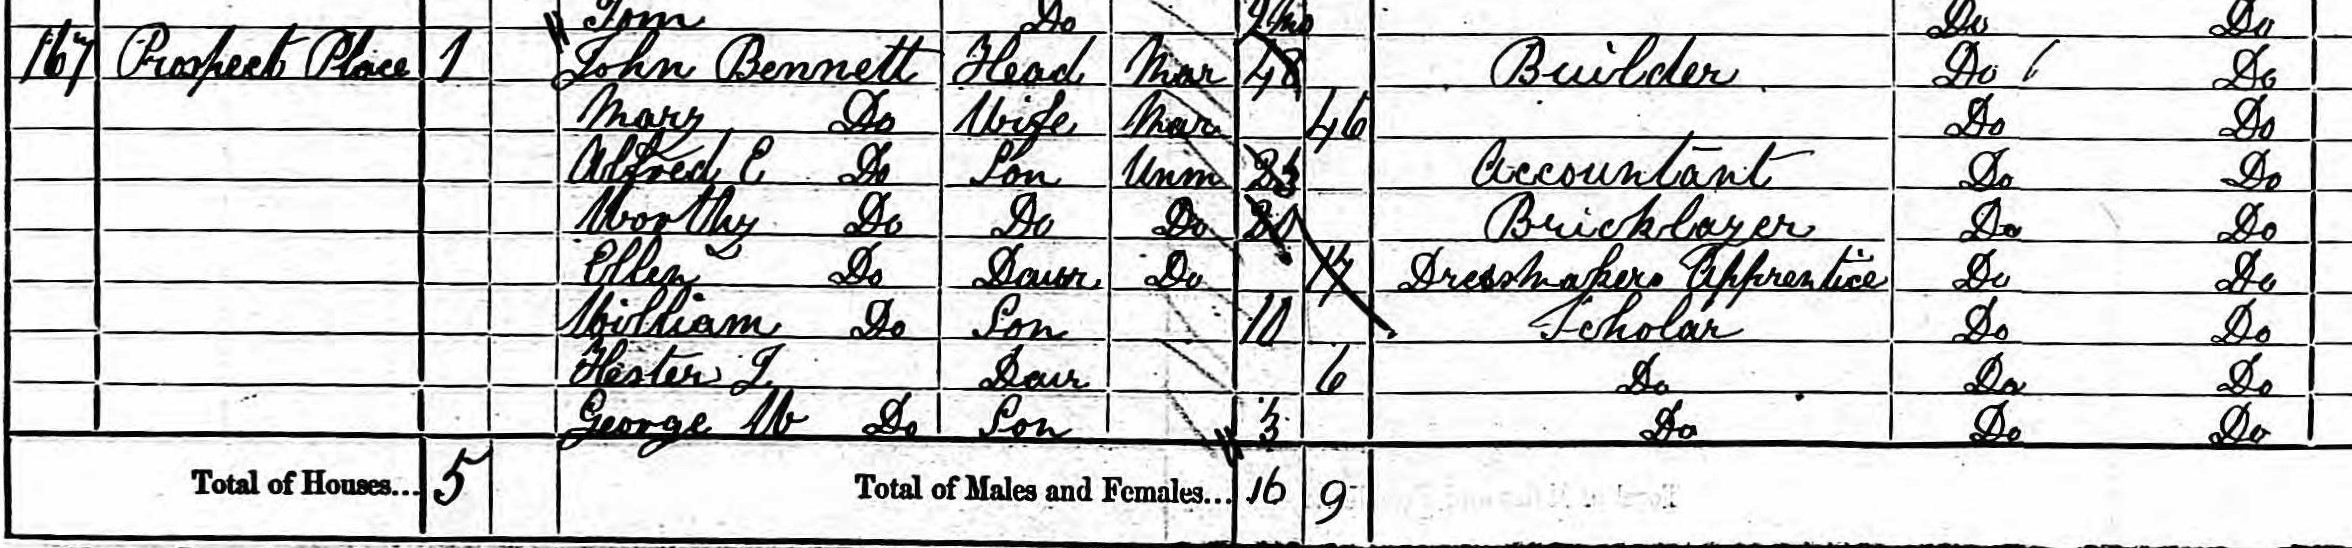 Tom Do 2mo Do Do
167 Prospect Place 1 John Bennett Head Mar 48 Builder Do Do
Mary Do Wife Mar 46 Do Do
Alfred E Do Son Unm 23 Accountant Do Do
Worthy Do Do Do 20 Bricklayer Do Do
Ellen Do Daur Do 17 Dressmakers Apprentice Do Do
William Do Son 10 Scholar Do Do
Hester J Daur 6 Do Do Do
George W Do Son 3 Do Do Do
Total of Houses... 5 Total of Males and Females... 16 9